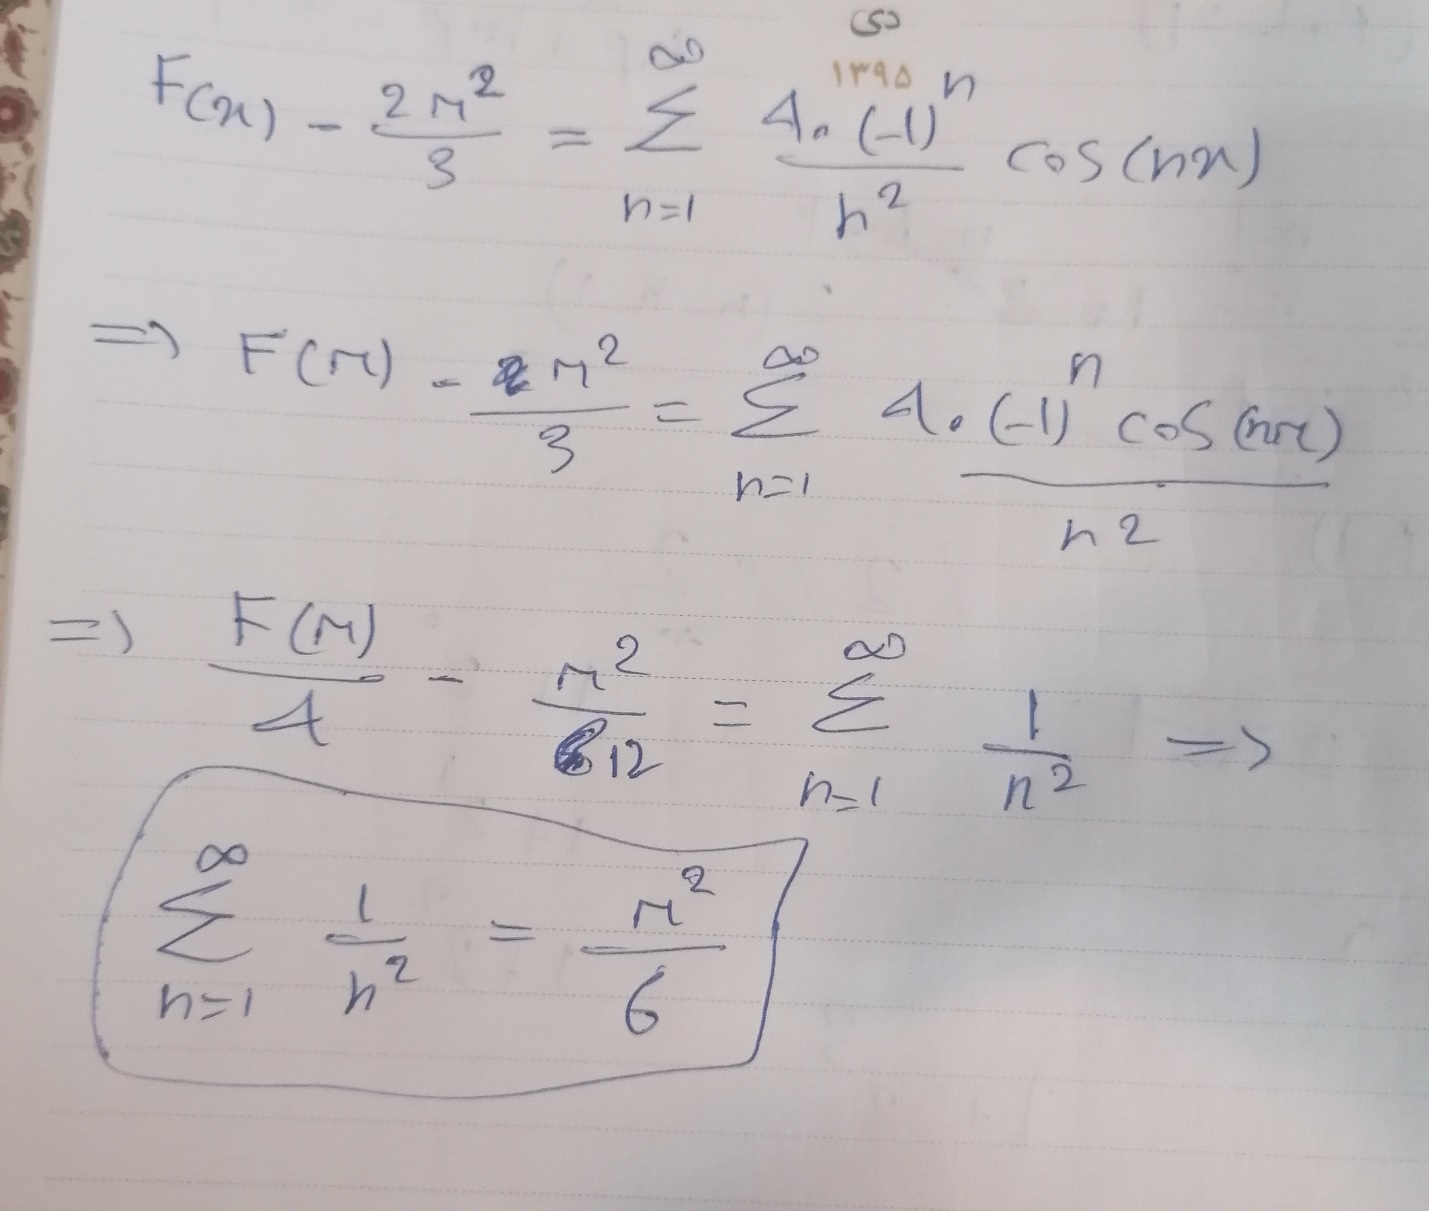 دی
۱۳۹۵
F(x) - 2π²/3 = ∞∑n=1 4·(-1)ⁿ/n² cos(nx)
=> F(π) - π²/3 = ∞∑n=1 4·(-1)ⁿ cos(nπ)/n²
=> F(π)/4 - π²/12 = ∞∑n=1 1/n² =>
∞∑n=1 1/n² = π²/6